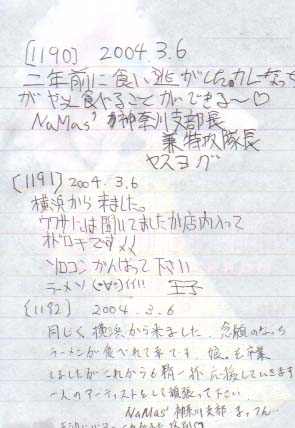 [1190] 2004.3.6
二年前に食い逃がした。カレーなっち
がやっと食べることができる〜♡
NaMas' 神奈川支部長
兼 特攻隊長
ヤスヨグ
[1191] 2004.3.6
横浜から来ました。
ウワサには聞いてましたが店内入って
オドロキです
ソロコンがんばって下さい
ラーメン (・∀・)イイ!! 王子
[1192] 2004.3.6
同じく横浜から来ました。念願のなっち
ラーメンが食べれて幸です。娘。を卒業
しましたがこれからも精一杯応援していきます
一人のアーティストとして頑張って下さい
NaMas' 神奈川支部